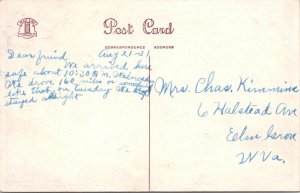 Post Card
CORRESPONDENCE ADDRESS
Dear friend Aug 21-31
We arrived here
safe about 10:30 A.M. Wednesday
We drove 160 miles or something
like that, on Tuesday We
stayed all night
Mrs. Chas. Kimmins
6 Halstead Ave
Elm Grove
W Va.